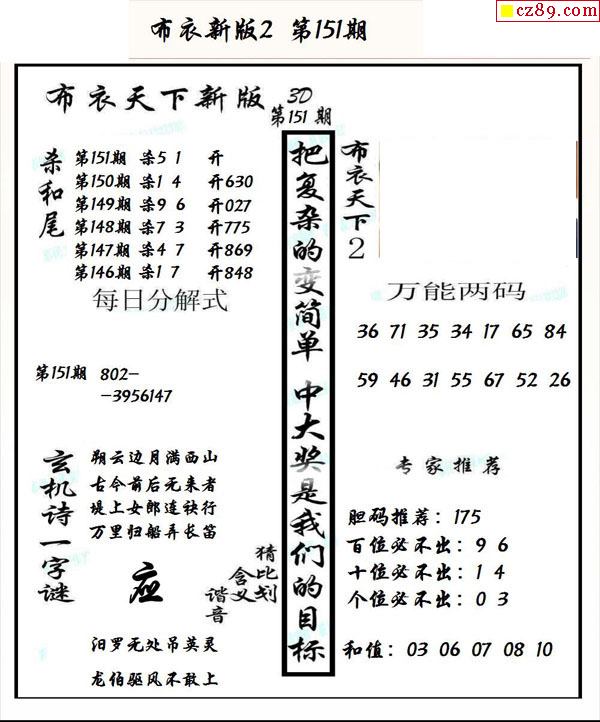 cz89.com
布衣新版2 第151期
布衣天下新版 3D
第151期
杀和尾
第151期 杀5 1 开
第150期 杀1 4 开630
第149期 杀9 6 开027
第148期 杀7 3 开775
第147期 杀4 7 开869
第146期 杀1 7 开848
每日分解式
第151期 802-
-3956147
玄机诗一字谜
朔云边月满西山
古今前后无来者
堤上女郎连袂行
万里归船弄长笛
应
猜比划
含义
谐音
汨罗无处吊英灵
龙伯驱风不敢上
把复杂的变简单 中大奖是我们的目标
布衣天下2
万能两码
36 71 35 34 17 65 84
59 46 31 55 67 52 26
专家推荐
胆码推荐：175
百位必不出：9 6
十位必不出：1 4
个位必不出：0 3
和值：03 06 07 08 10